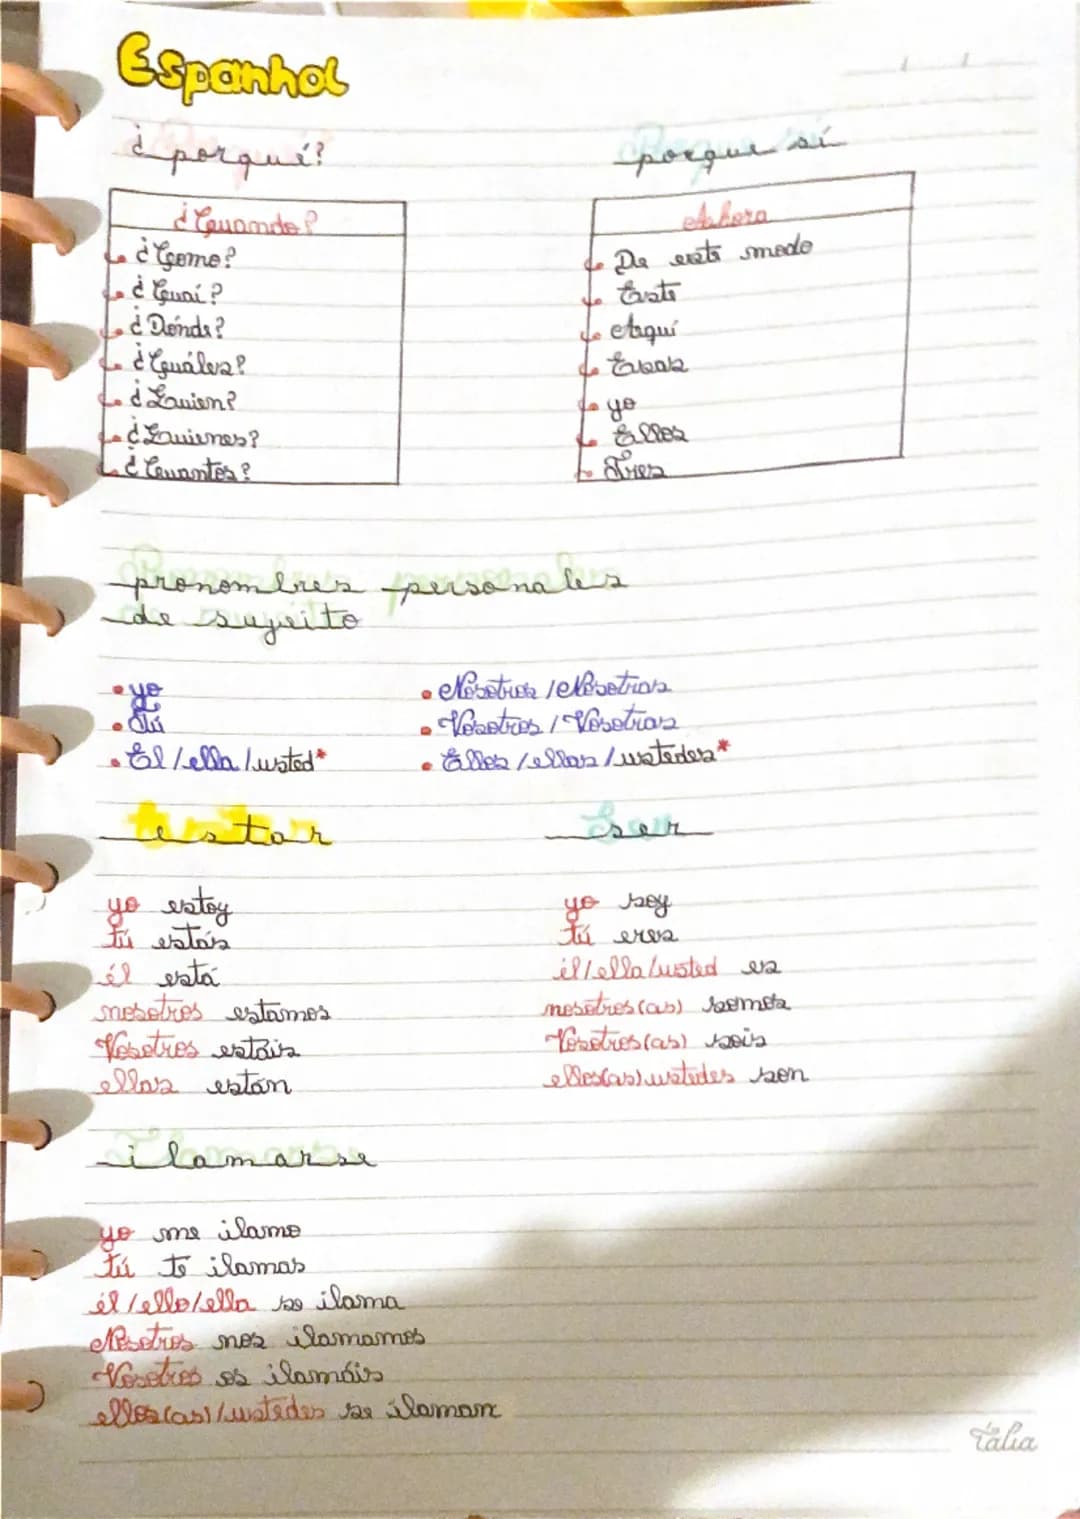 Espanhol
¿porqué?
porque sí
¿Cuando?
¿Come?
¿Cuai?
¿Dónde?
¿Cuáles?
¿Quien?
¿Quienes?
¿Cuantos?
Ahora
De este modo
Este
Aquí
Esas
yo
Ellos
Tres
pronombres personales
de sujeito
• yo
• Tú
• El/ella/usted*
• Nosotros/Nosotras
• Vosotros/Vosotras
• Ellos/ellas/ustedes*
estar
yo estoy
tú estás
él está
nosotros estamos
Vosotros estáis
ellas están
ser
yo soy
tú eres
él/ella/usted es
nosotros(as) somos
Vosotros(as) sois
ellos(as) ustedes son
ilamarse
yo me ilamo
tú te ilamas
él/ello/ella se ilama
Nosotros nos ilamamos
Vosotros os ilamáis
ellos(as)/ustedes se ilaman
Tália